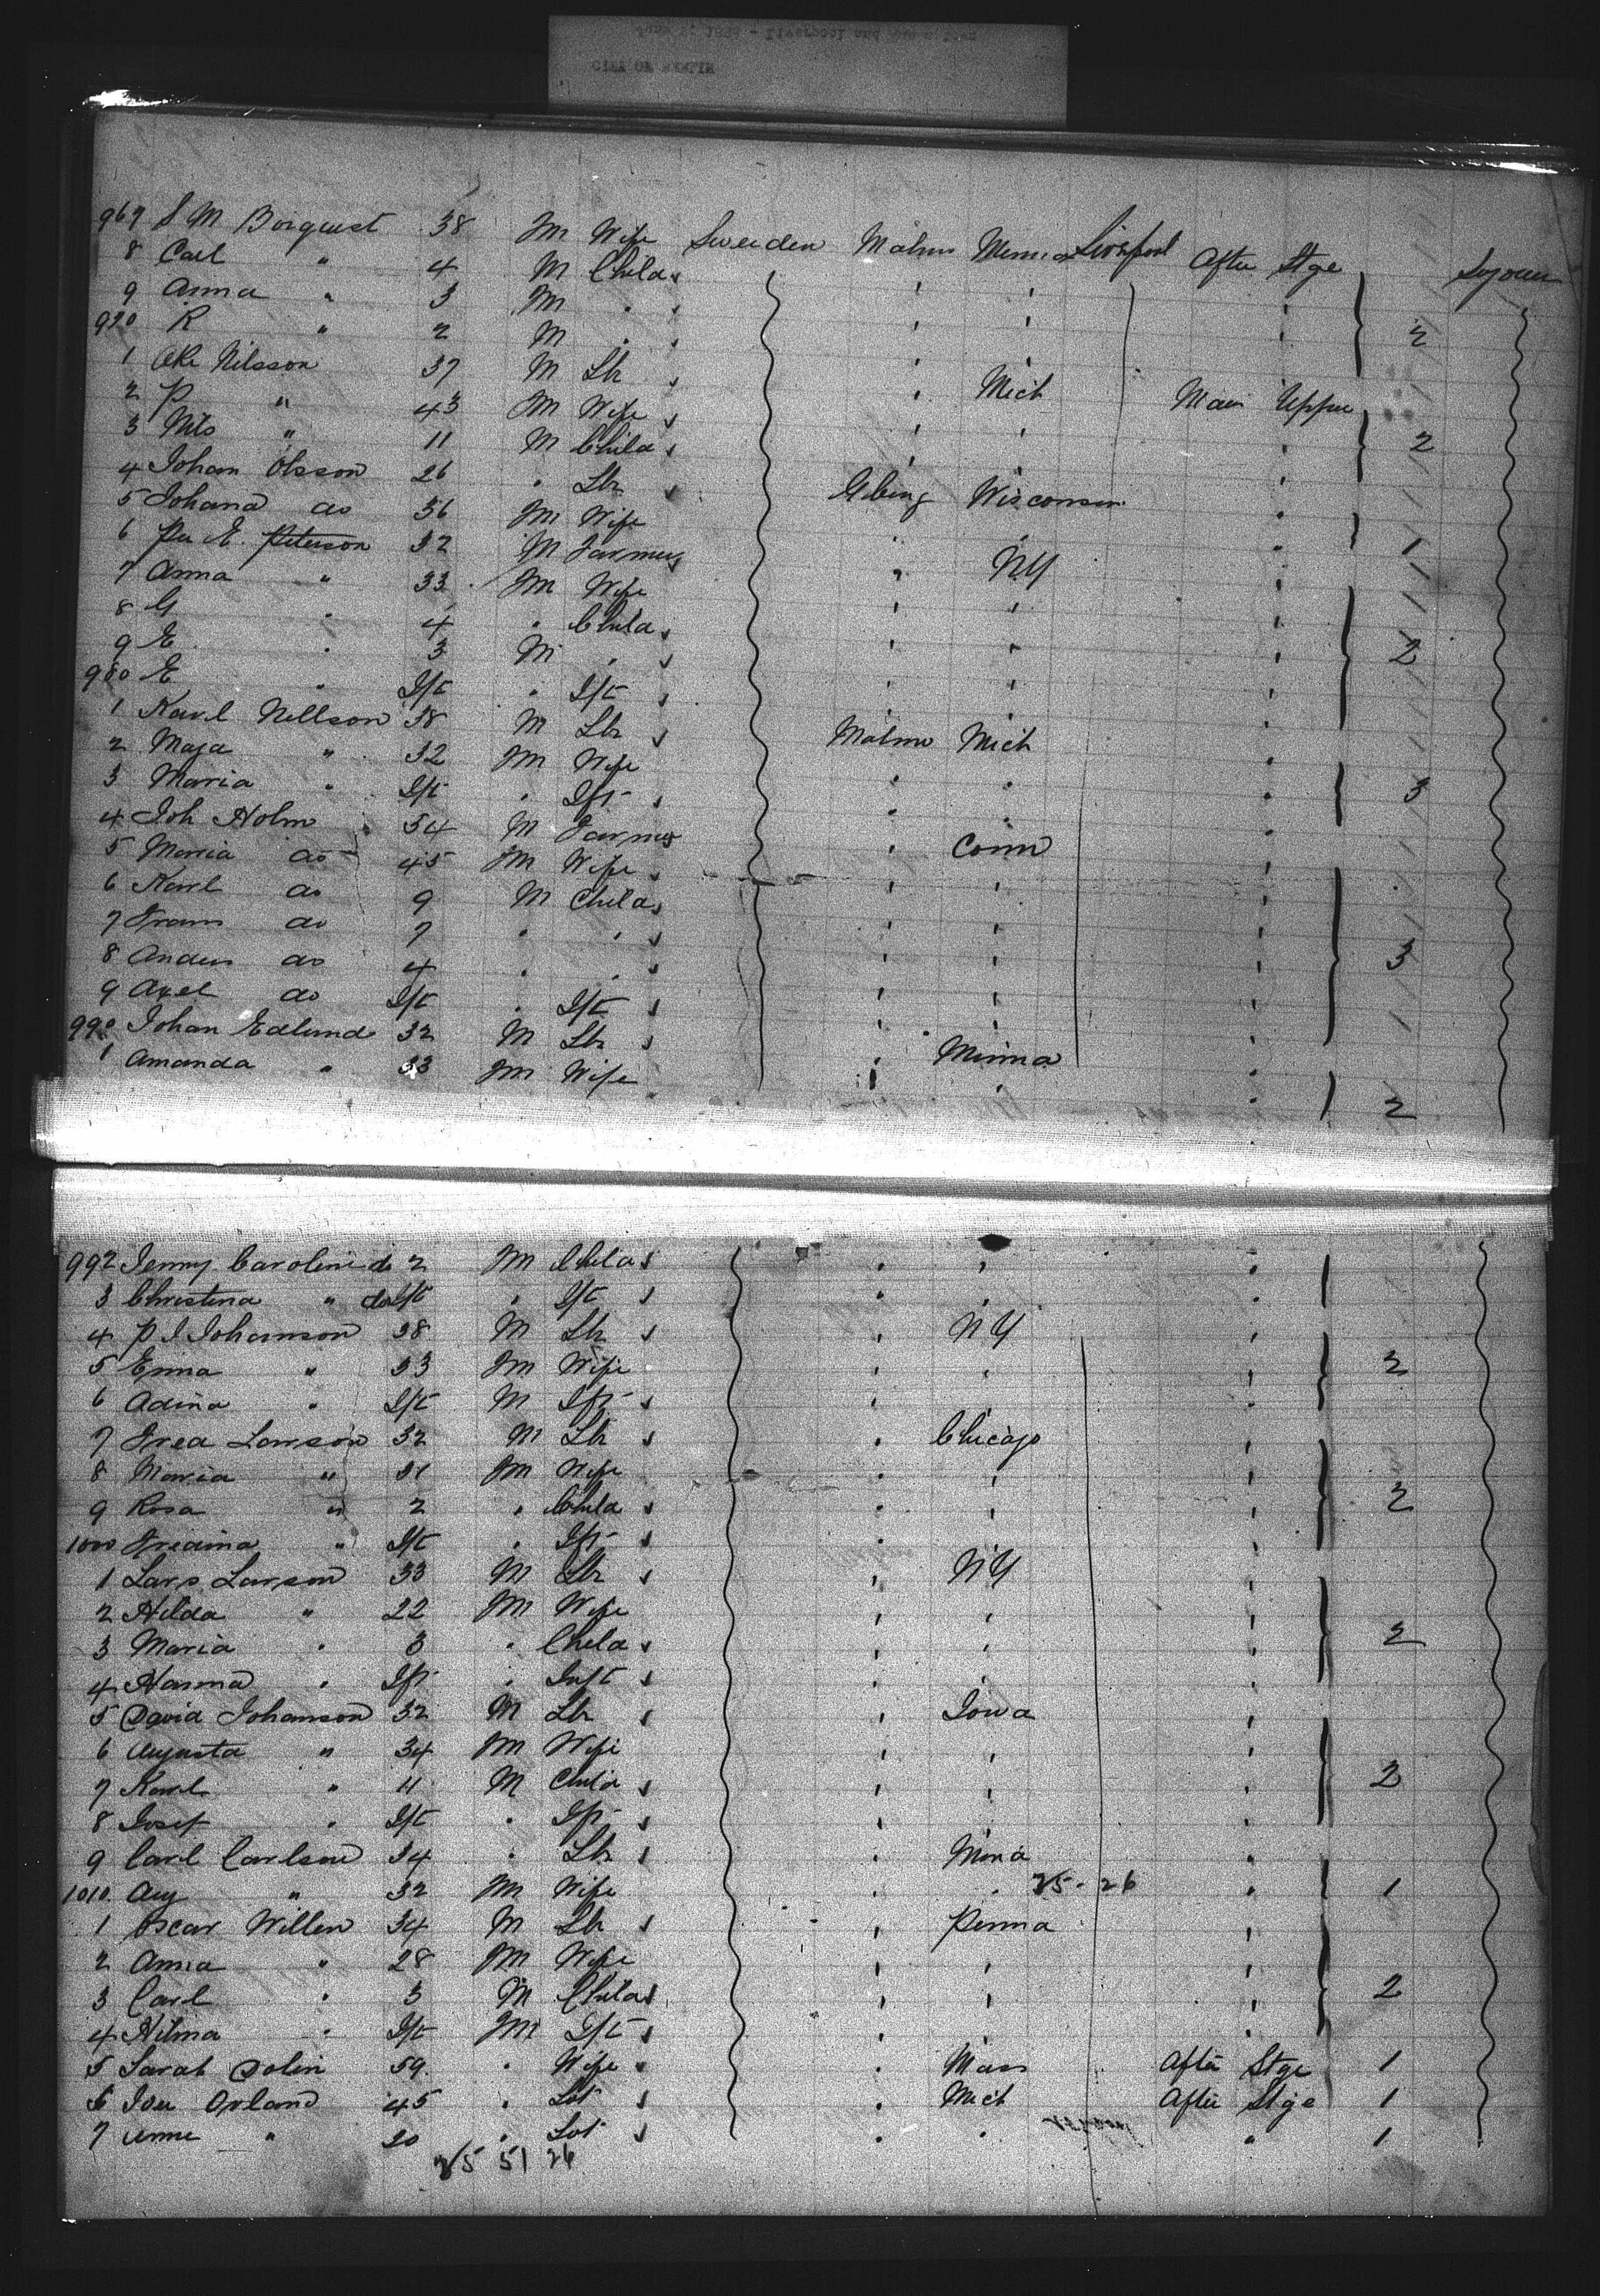 CITY OF BERLIN
967 S M Borquist 38 M Wife Sweeden Malmo Minna Liverpool After Stge Sojourn
8 Carl " 4 M Child
9 Anna " 3 M
970 R " 2 M 2
1 Ole Nilsson 37 M Lbr Mich Main Upper
2 P " 43 M Wife
3 Nils " 11 M Child 2
4 Johan Olsson 26 Lbr Gbing Wisconsin
5 Johana do 36 M Wife 1
6 Per E. Peterson 32 M Farmer NY
7 Anna " 33 M Wife
8 G 4 Child
9 E 3 M 2
980 E " Ift Ift
1 Karl Nellson 38 M Lbr Malmo Mich
2 Maja " 32 M Wife
3 Maria " Ift Ift 3
4 Joh Holm 54 M Farmer Conn
5 Maria do 45 M Wife
6 Karl do 9 M Child
7 Frans do 7
8 Anders do 4 3
9 Axel do Ift Ift
990 Johan Edlund 32 M Lbr Minna
1 Amanda " 33 M Wife 2
992 Jenny Carolini do 2 M Child
3 Christina " do Ift Ift
4 P J Johanson 38 M Lbr NY
5 Emma " 33 M Wife 2
6 Adina " Ift M Ift
7 Fred Larson 32 M Lbr Chicago
8 Maria " 31 M Wife
9 Rosa " 2 Child 2
1000 Fridina " Ift Ift
1 Lars Larson 33 M Lbr NY
2 Hilda " 22 M Wife
3 Maria " 3 Child 2
4 Hanna " Ift Inft
5 David Johanson 32 M Lbr Iowa
6 Augusta " 34 M Wife
7 Karl " 11 M Child 2
8 Josef " Ift Ift
9 Carl Carlson 34 Lbr Mina
1010 Aug " 32 M Wife 25 - 26 1
1 Oscar Willen 34 M Lbr Penna
2 Anna " 28 M Wife
3 Carl " 3 M Child 2
4 Hilma " Ift M Ift
5 Sarah Dolin 59 Wife Mass After Stge 1
6 Iver Orland 45 Lbr Mich After Stge 1
7 Anne " 20 " 1
25 51 26